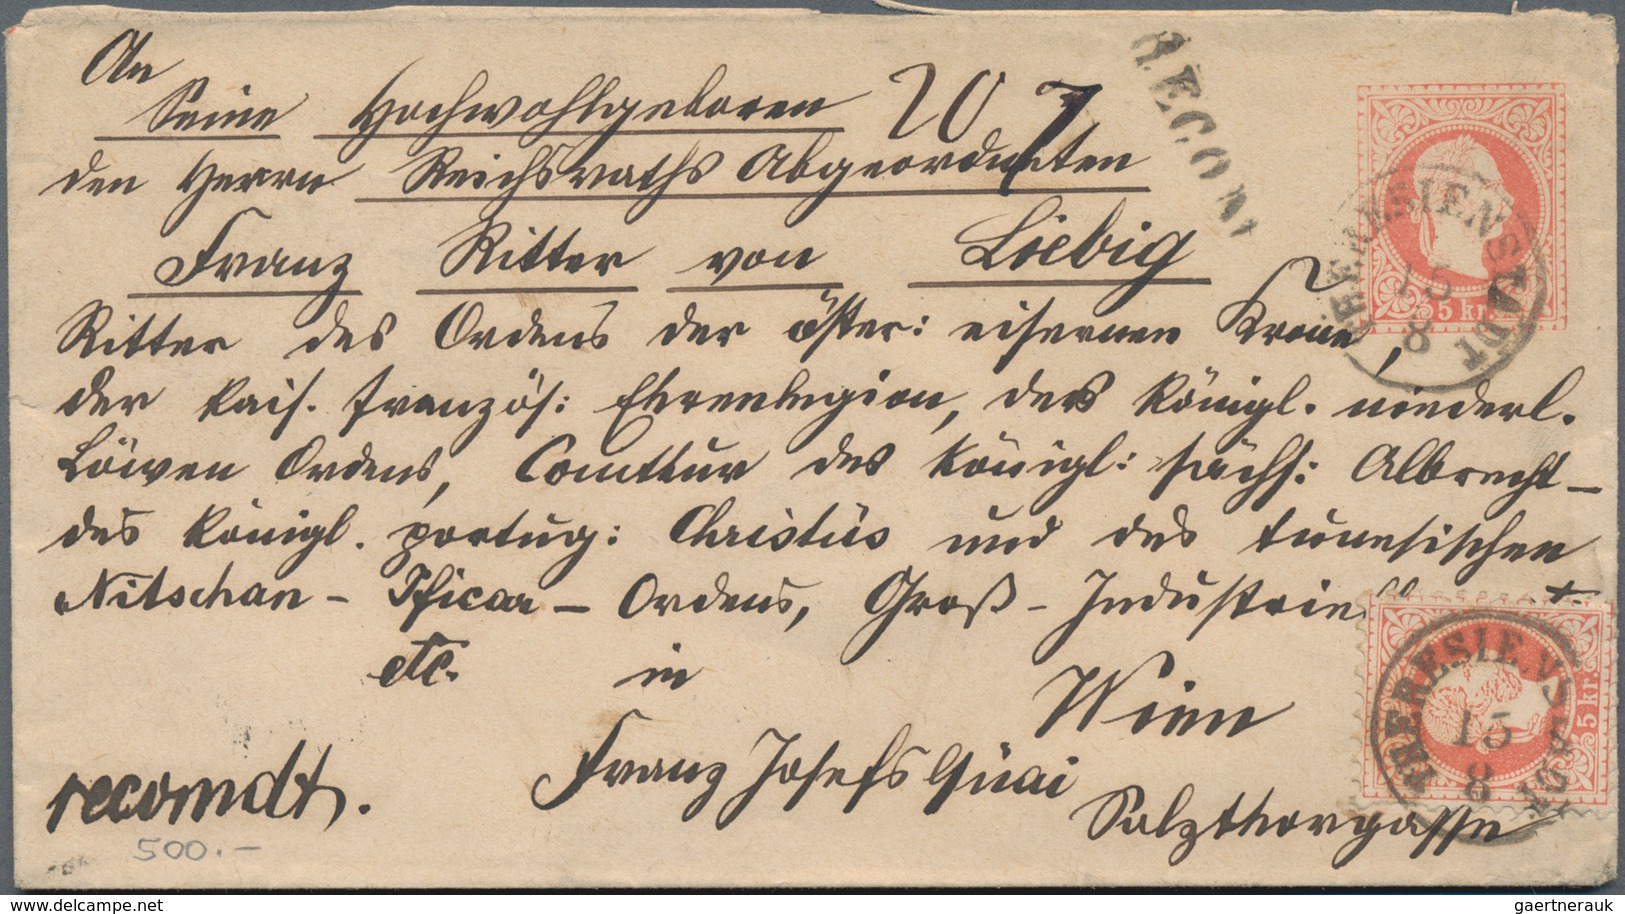 An
Seine Hochwohlgeboren 207
RECOM
den Herrn Reichsraths Abgeordneten
Franz Ritter von Liebig
Ritter des Ordens der öster: eisernen Krone,
der kais. französ: Ehrenlegion, des königl. niederl.
Löwen Ordens, Comthur des königl: sächs: Albrecht-
des königl. portug: Christus und des tunesischen
Nitschan - Ificar - Ordens, Groß - Industriell
etc. in
Wien
Franz Josefs Quai
Salzthorgasse
recomdt.
500.-
5 kr
THERESIENSTADT
15
8
5 kr.
THERESIENSTADT
15
8
www.delcampe.net
gaertnerauk